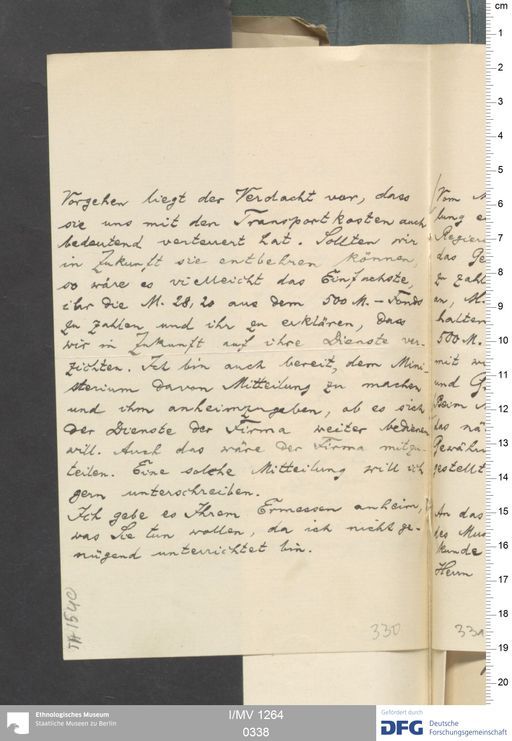 Vorgehen liegt der Verdacht vor, dass
sie uns mit den Transportkosten auch
bedeutend verteuert hat. Sollten wir
in Zukunft sie entbehren können,
so wäre es vielleicht das Einfachste,
ihr die M. 28,20 aus dem 500 M.-Fonds
zu zahlen und ihr zu erklären, dass
wir in Zukunft auf ihre Dienste ver-
zichten. Ich bin auch bereit, dem Mini-
sterium davon Mitteilung zu machen
und ihm anheimzugeben, ob es sich
der Dienste der Firma weiter bedienen
will. Auch das wäre der Firma mitzu-
teilen. Eine solche Mitteilung will ich
gern unterschreiben.
Ich gebe es Ihrem Ermessen anheim,
was Sie tun wollen, da ich nicht ge-
nügend unterrichtet bin.
330
TA 1540
Vom
lung
Regier
das Ge
zu zahl
an,
halten
500 M.
mit
und
Beim
das nä
Gewähr
gestellt
An das
des Mus
kunde
Herrn
cm
1
2
3
4
5
6
7
8
9
10
11
12
13
14
15
16
17
18
19
20
Ethnologisches Museum
Staatliche Museen zu Berlin
I/MV 1264
0338
Gefördert durch
DFG Deutsche
Forschungsgemeinschaft